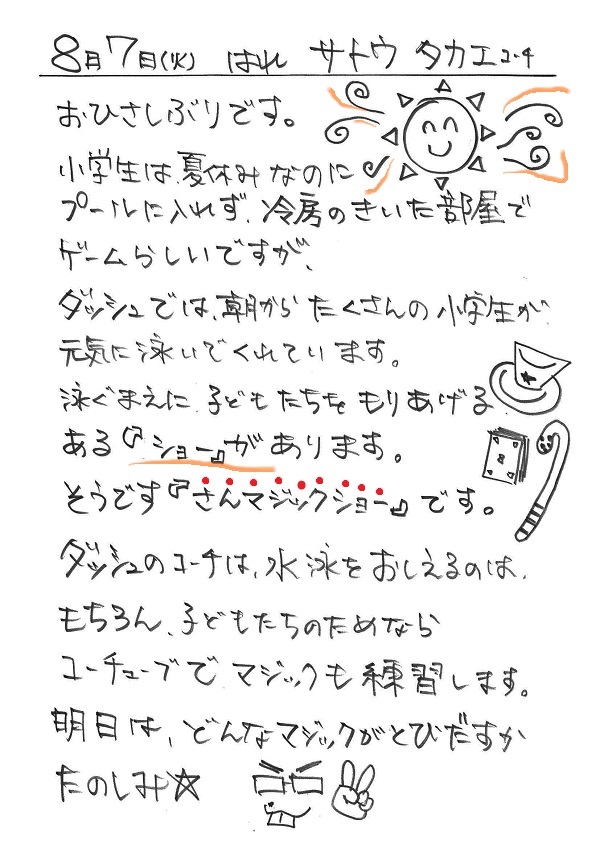 8月7日(火) はれ サトウ タカエコーチ
おひさしぶりです。
小学生は、夏休みなのに
プールに入れず、冷房のきいた部屋で
ゲームらしいですが、
ダッシュでは、朝からたくさんの小学生が、
元気に泳いでくれています。
泳ぐまえに、子どもたちをもりあげる
ある『ショー』があります。
そうです『さんマジックショー』です。
ダッシュのコーチは、水泳をおしえるのは、
もちろん、子どもたちのためなら
ユーチューブでマジックも練習します。
明日は、どんなマジックがとびだすか
たのしみ☆